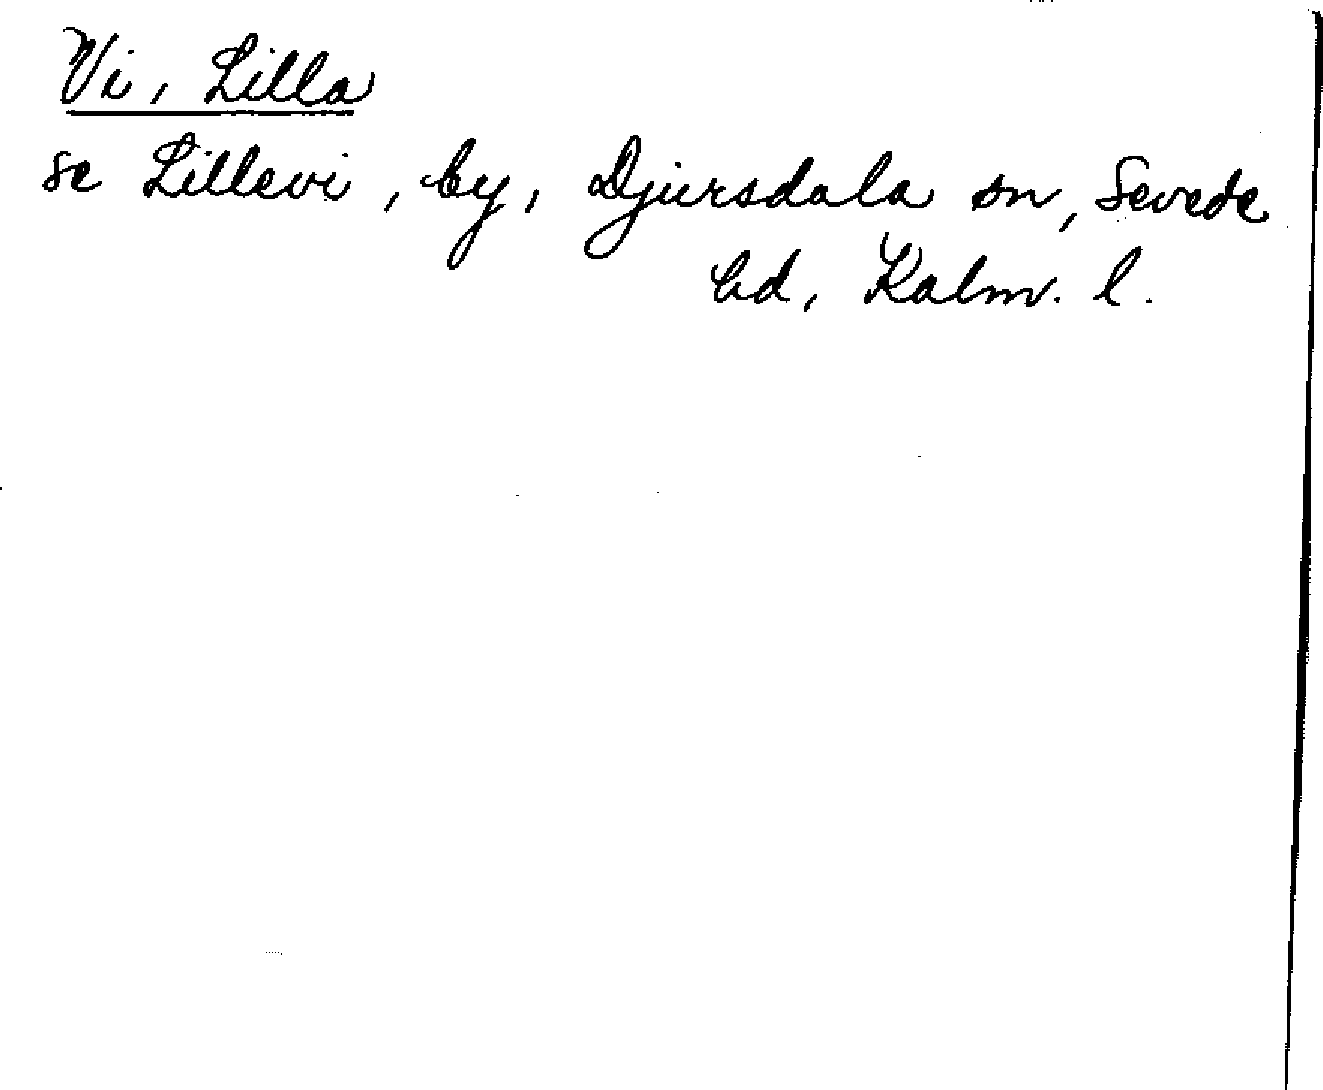 Vi, Lilla
se Lillevi, by, Djursdala sn, Sevede
hd, Kalm. l.